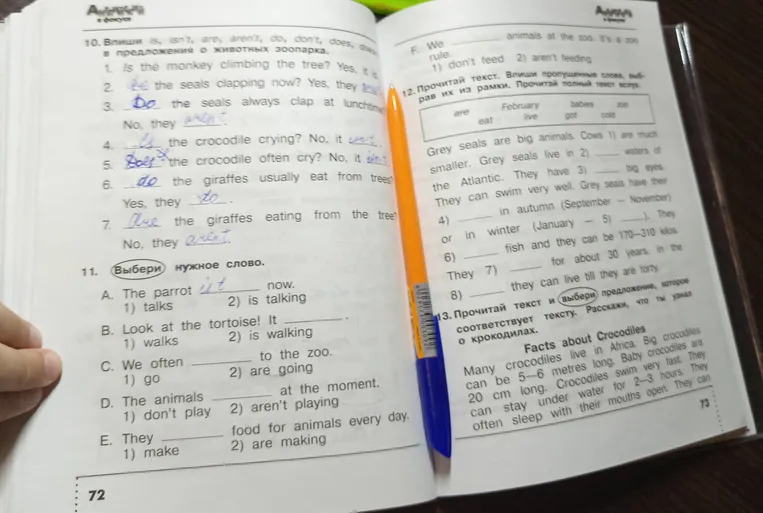 в фокусе
10. Впиши is, isn't, are, aren't, do, don't, does,
в предложения о животных зоопарка.
1. Is the monkey climbing the tree? Yes, it is
2. the seals clapping now? Yes, they
3. Do the seals always clap at lunchtime
No, they aren't.
4. Is the crocodile crying? No, it
5. Does the crocodile often cry? No, it
6. do the giraffes usually eat from trees
Yes, they do.
7. are the giraffes eating from the tree
No, they aren't.
11. Выбери нужное слово.
A. The parrot now.
1) talks 2) is talking
B. Look at the tortoise! It ______.
1) walks 2) is walking
C. We often ______ to the zoo.
1) go 2) are going
D. The animals ______ at the moment.
1) don't play 2) aren't playing
E. They ______ food for animals every day.
1) make 2) are making
72
в фокусе
F. We ______ animals at the zoo. It's a zoo
rule.
1) don't feed 2) aren't feeding
12. Прочитай текст. Впиши пропущенные слова, выб-
рав их из рамки. Прочитай полный текст вслух.
are February babies zoo
eat live got cold
Grey seals are big animals. Cows 1) are much
smaller. Grey seals live in 2) ______ waters of
the Atlantic. They have 3) ______ big eyes.
They can swim very well. Grey seals have their
4) ______ in autumn (September – November)
or in winter (January – 5) ______). They
6) ______ fish and they can be 170–310 kilos.
They 7) ______ for about 30 years. In the
8) ______ they can live till they are forty.
13. Прочитай текст и выбери предложение, которое
соответствует тексту. Расскажи, что ты узнал
о крокодилах.
Facts about Crocodiles
Many crocodiles live in Africa. Big crocodiles
can be 5–6 metres long. Baby crocodiles are
20 cm long. Crocodiles swim very fast. They
can stay under water for 2–3 hours. They
often sleep with their mouths open. They can
73